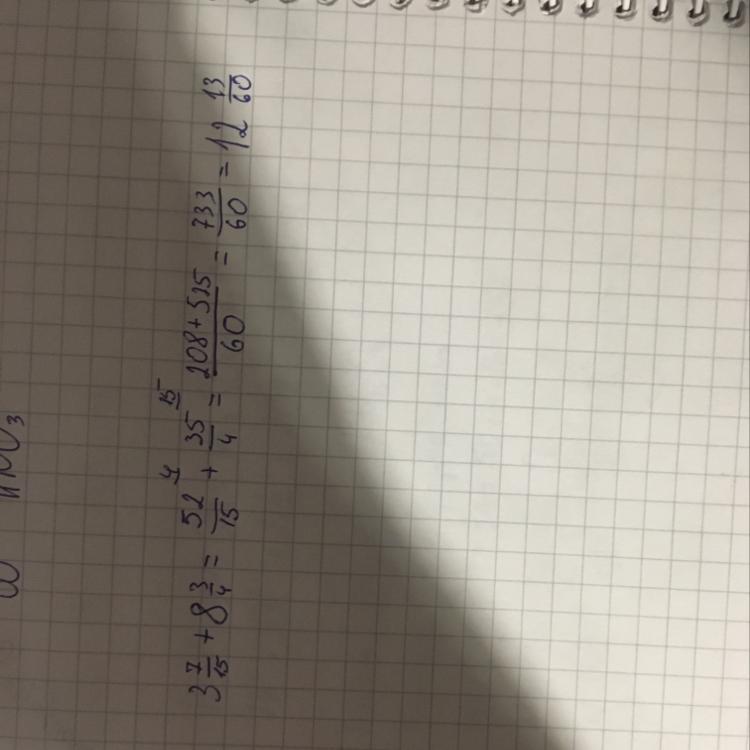 3 7/15 + 8 3/4 = 52/15 4 + 35/4 15 = 208+525/60 = 733/60 = 12 13/60